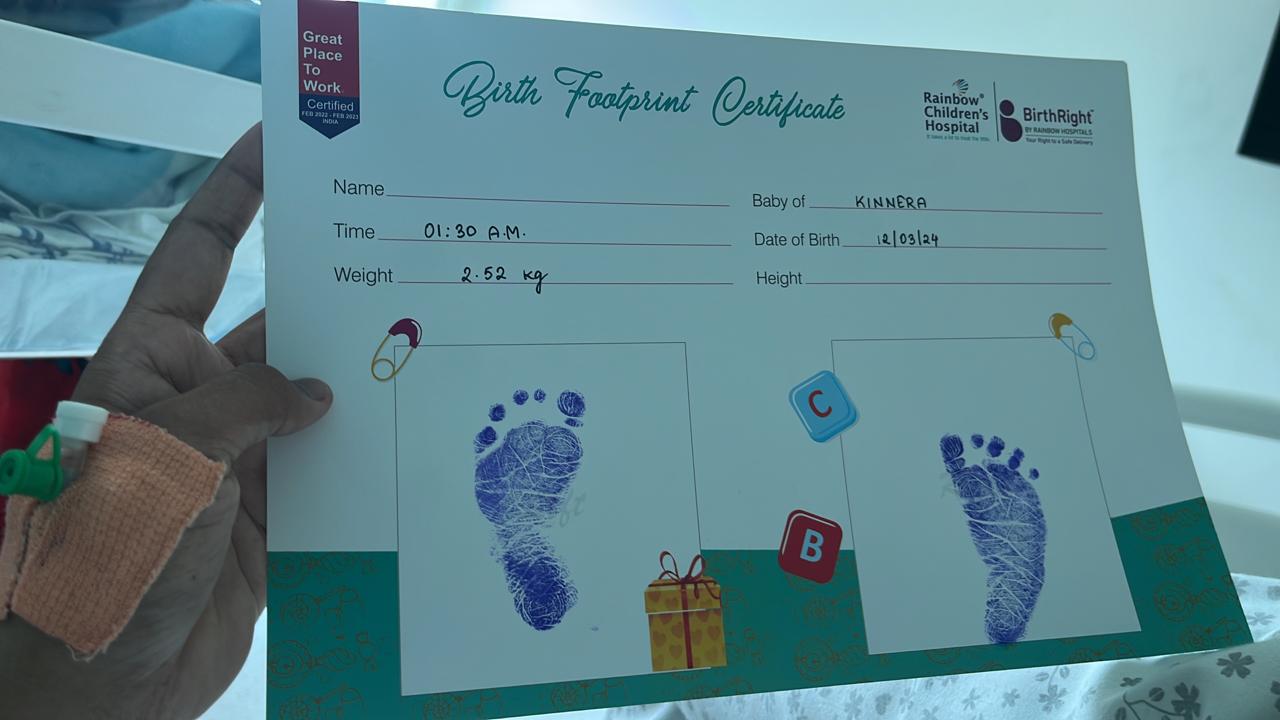 Great
Place
To
Work.
Certified
FEB 2022 - FEB 2023
INDIA
Birth Footprint Certificate
Rainbow®
Children's
Hospital
It takes a lot to treat the little.
BirthRight™
BY RAINBOW HOSPITALS
Your Right to a Safe Delivery
Name
Baby of KINNERA
Time 01:30 A.M.
Date of Birth 12/03/24
Weight 2.52 kg
Height
C
B